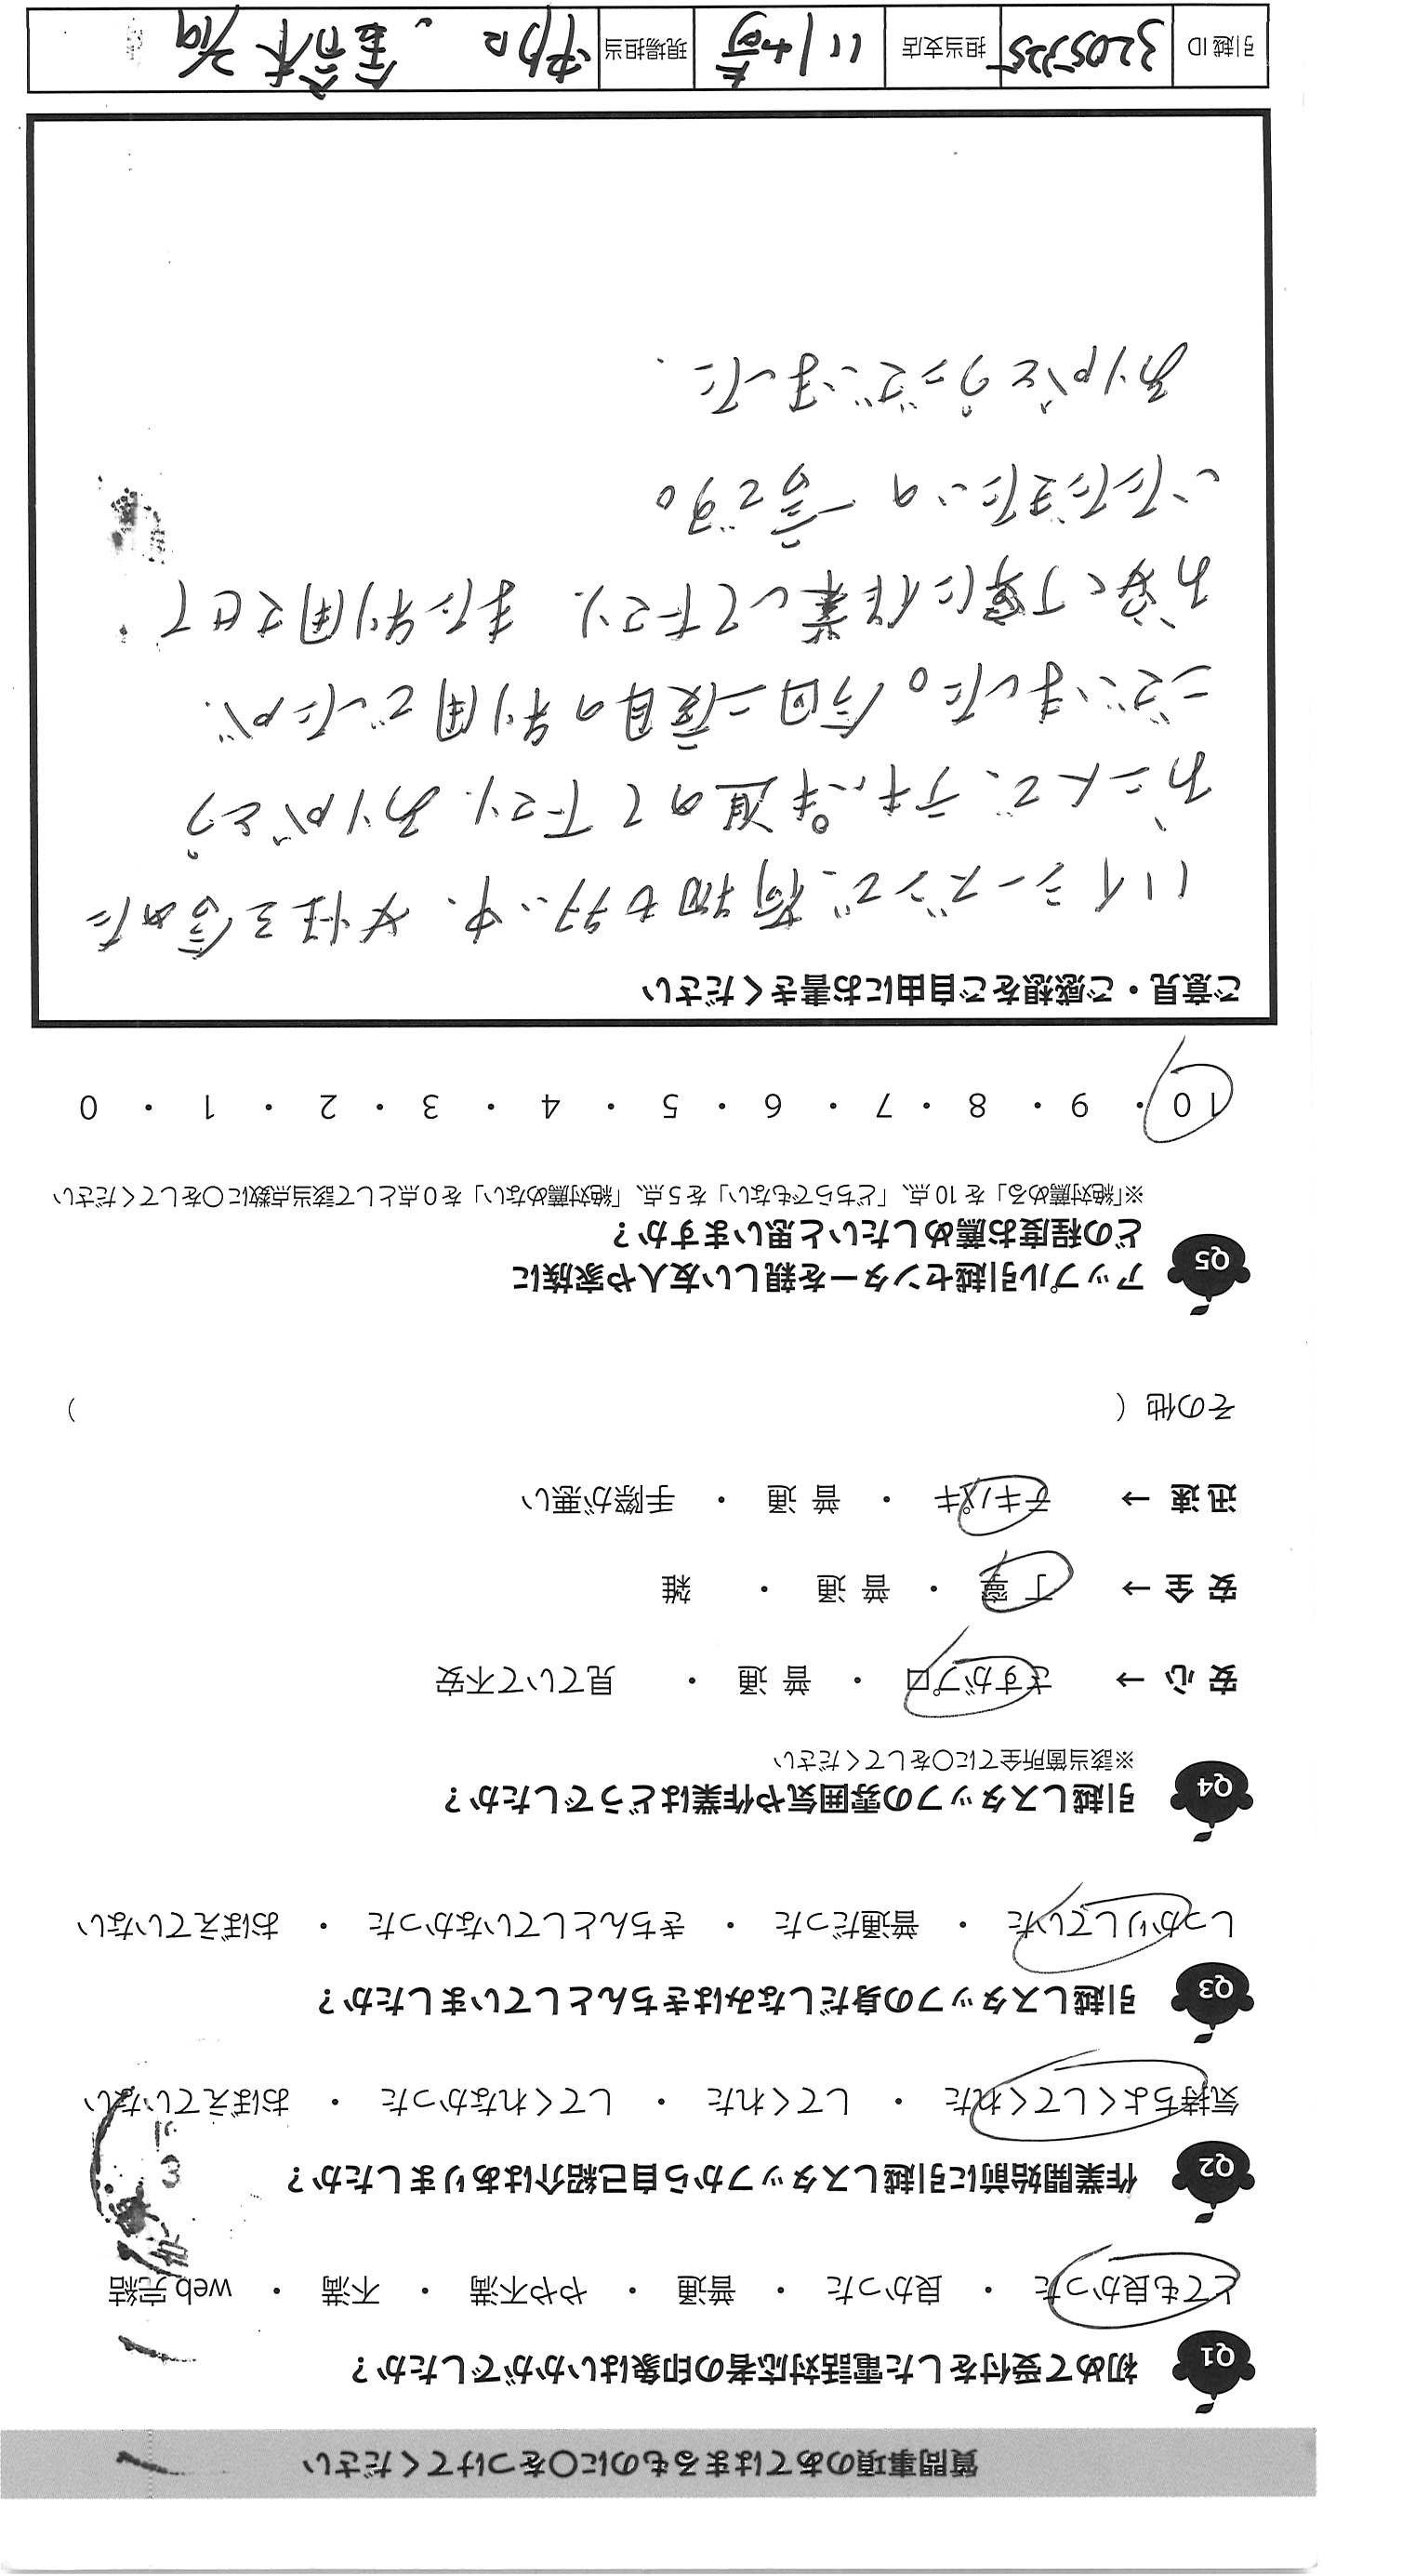 質問事項のあてはまるものに○をつけてください
Q1 初めて受付をした電話対応者の印象はいかがでしたか？
とても良かった ・ 良かった ・ 普通 ・ やや不満 ・ 不満 ・ web 完結
Q2 作業開始前に引越しスタッフから自己紹介はありましたか？
気持ちよくしてくれた ・ してくれた ・ してくれなかった ・ おぼえていない
Q3 引越しスタッフの身だしなみはきちんとしていましたか？
しっかりしていた ・ 普通だった ・ きちんとしていなかった ・ おぼえていない
Q4 引越しスタッフの雰囲気や作業はどうでしたか？
※該当箇所全てに○をしてください
安 心 → さすがプロ ・ 普 通 ・ 見ていて不安
安 全 → 丁 寧 ・ 普 通 ・ 雑
迅 速 → テキパキ ・ 普 通 ・ 手際が悪い
その他（ ）
Q5 アップル引越センターを親しい友人や家族に
どの程度お薦めしたいと思いますか？
※「絶対薦める」を 10 点、「どちらでもない」を 5 点、「絶対薦めない」を 0 点として該当点数に○をしてください
10 ・ 9 ・ 8 ・ 7 ・ 6 ・ 5 ・ 4 ・ 3 ・ 2 ・ 1 ・ 0
ご意見・ご感想をご自由にお書きください
ハイシーズンで、荷物も多い中、女性3名めた
お二人で、テキパキ進めて下さり、ありがとう
ございました。今回二度目の利用でしたが、
お安く丁寧に作業して下さり、また利用させて
いただきたいの一言です。
ありがとうございました.
引越 ID 3205325 担当支店 現場担当